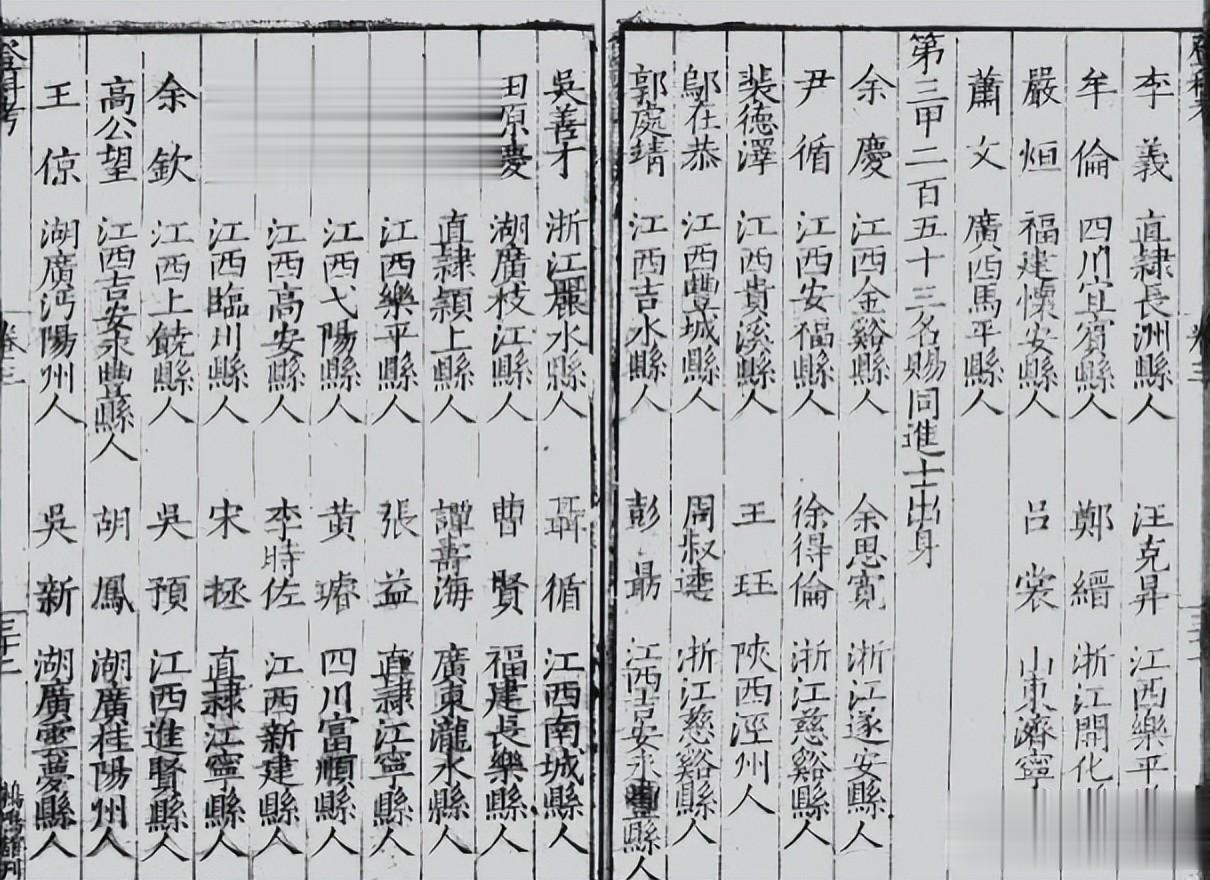 李義 直隸長洲縣人 汪克昇 江西樂平
牟倫 四川宜賓縣人 鄭縉 浙江開化
嚴烜 福建懷安縣人 呂裳 山東濟寧
蕭文 廣西馬平縣人
第三甲二百五十三名賜同進士出身
余慶 江西金谿縣人 余思寬 浙江遂安縣人
尹循 江西安福縣人 徐得倫 浙江慈谿縣人
裴德澤 江西貴溪縣人 王玨 陝西涇州人
鄔在恭 江西豐城縣人 周叔逵 浙江慈谿縣人
郭處靖 江西吉水縣人 彭勗 江西吉安永豐縣人
吳善才 浙江麗水縣人 聶循 江西南城縣人
田原慶 湖廣枝江縣人 曹賢 福建長樂縣人
直隸潁上縣人 譚壽海 廣東瀧水縣人
江西樂平縣人 張益 直隸江寧縣人
江西弋陽縣人 黃璿 四川富順縣人
江西高安縣人 李時佐 江西新建縣人
江西臨川縣人 宋拯 直隸江寧縣人
余欽 江西上饒縣人 吳預 江西進賢縣人
高公望 江西吉安永豐縣人 胡鳳 湖廣桂陽州人
王倞 湖廣沔陽州人 吳新 湖廣雲夢縣人
登科考 卷三 三十二